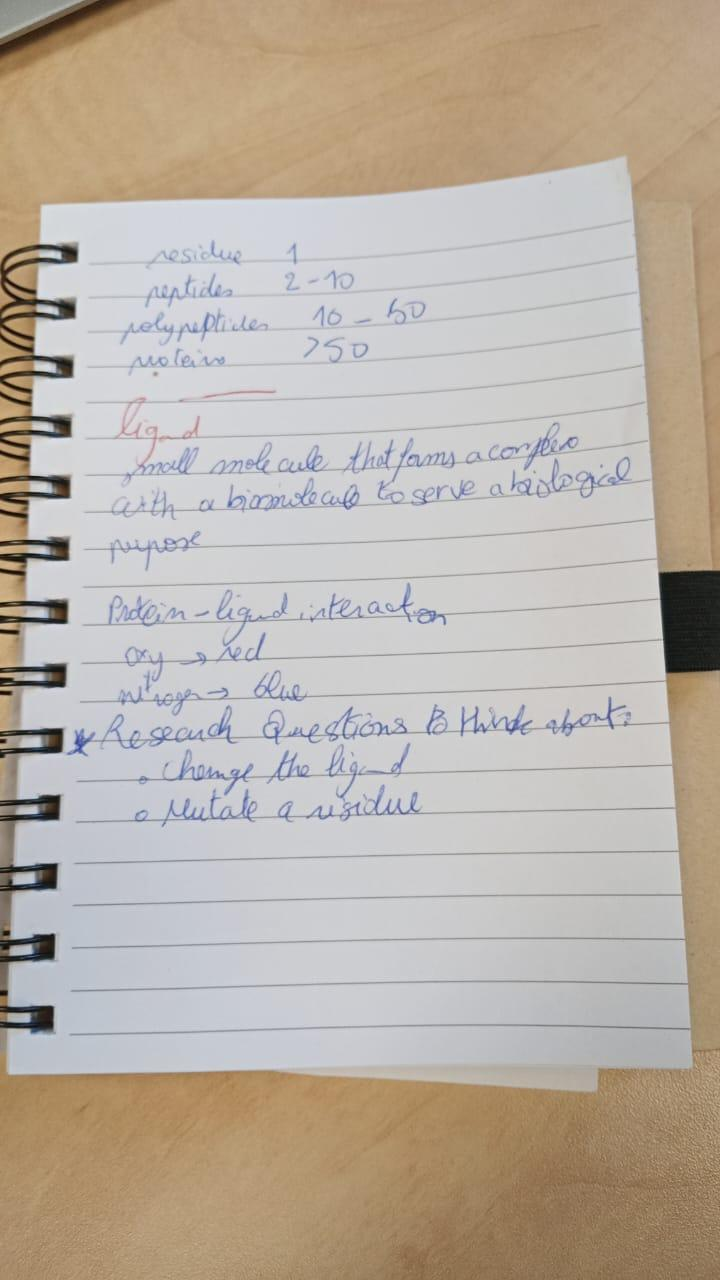 residue 1
peptides 2-10
polypeptides 10-50
proteins >50
ligand
small molecule that forms a complex
with a biomolecule to serve a biological
purpose
Protein-ligand interaction
oxy → red
nitrogen → blue
* Research Questions to think about:
• Change the ligand
• Mutate a residue